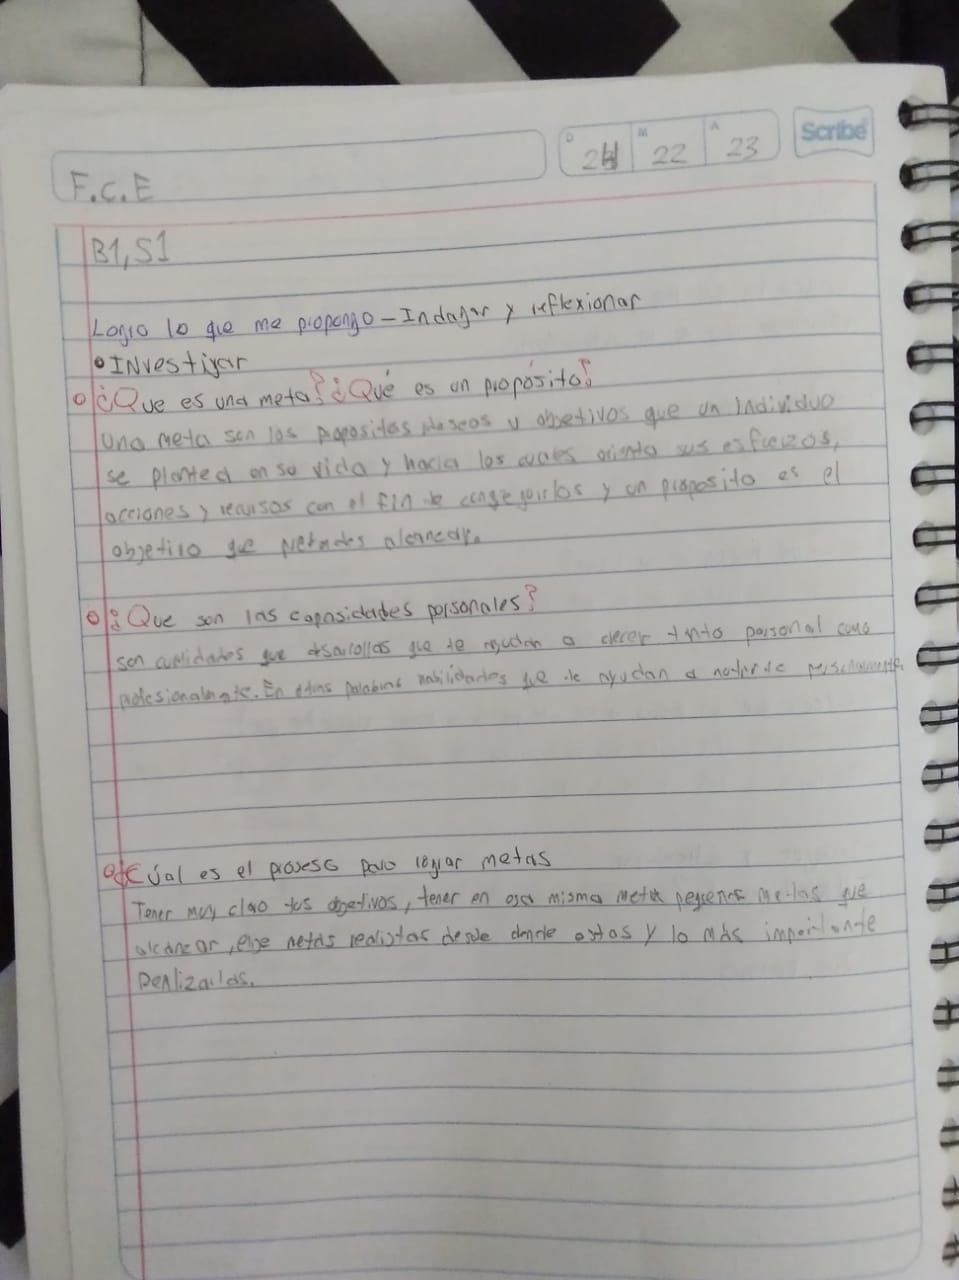 D 24 M 22 A 23 Scribe
F.C.E
B1, S1
Logro lo que me propongo - Indagar y reflexionar
• INvestigar
¿Que es una meta? ¿Qué es un propósito?
Una meta son los propositos deseos y objetivos que un individuo
se plantea en su vida y hacia los cuales orienta sus esfuerzos,
acciones y recursos con el fin de conseguirlos y un proposito es el
objetivo que pretendes alcanzar.
¿Que son las capasidades personales?
son cualidades que desarrollas que te ayudan a crecer tanto personal como
profesionalmente. En otras palabras habilidades que te ayudan a personalmente.
¿Cúal es el proseso para lograr metas
Tener muy claro tus objetivos, tener en esa misma meta pequeñas metas que
alcanzar, elige metas realistas desde donde estas y lo más importante
Realizarlas.